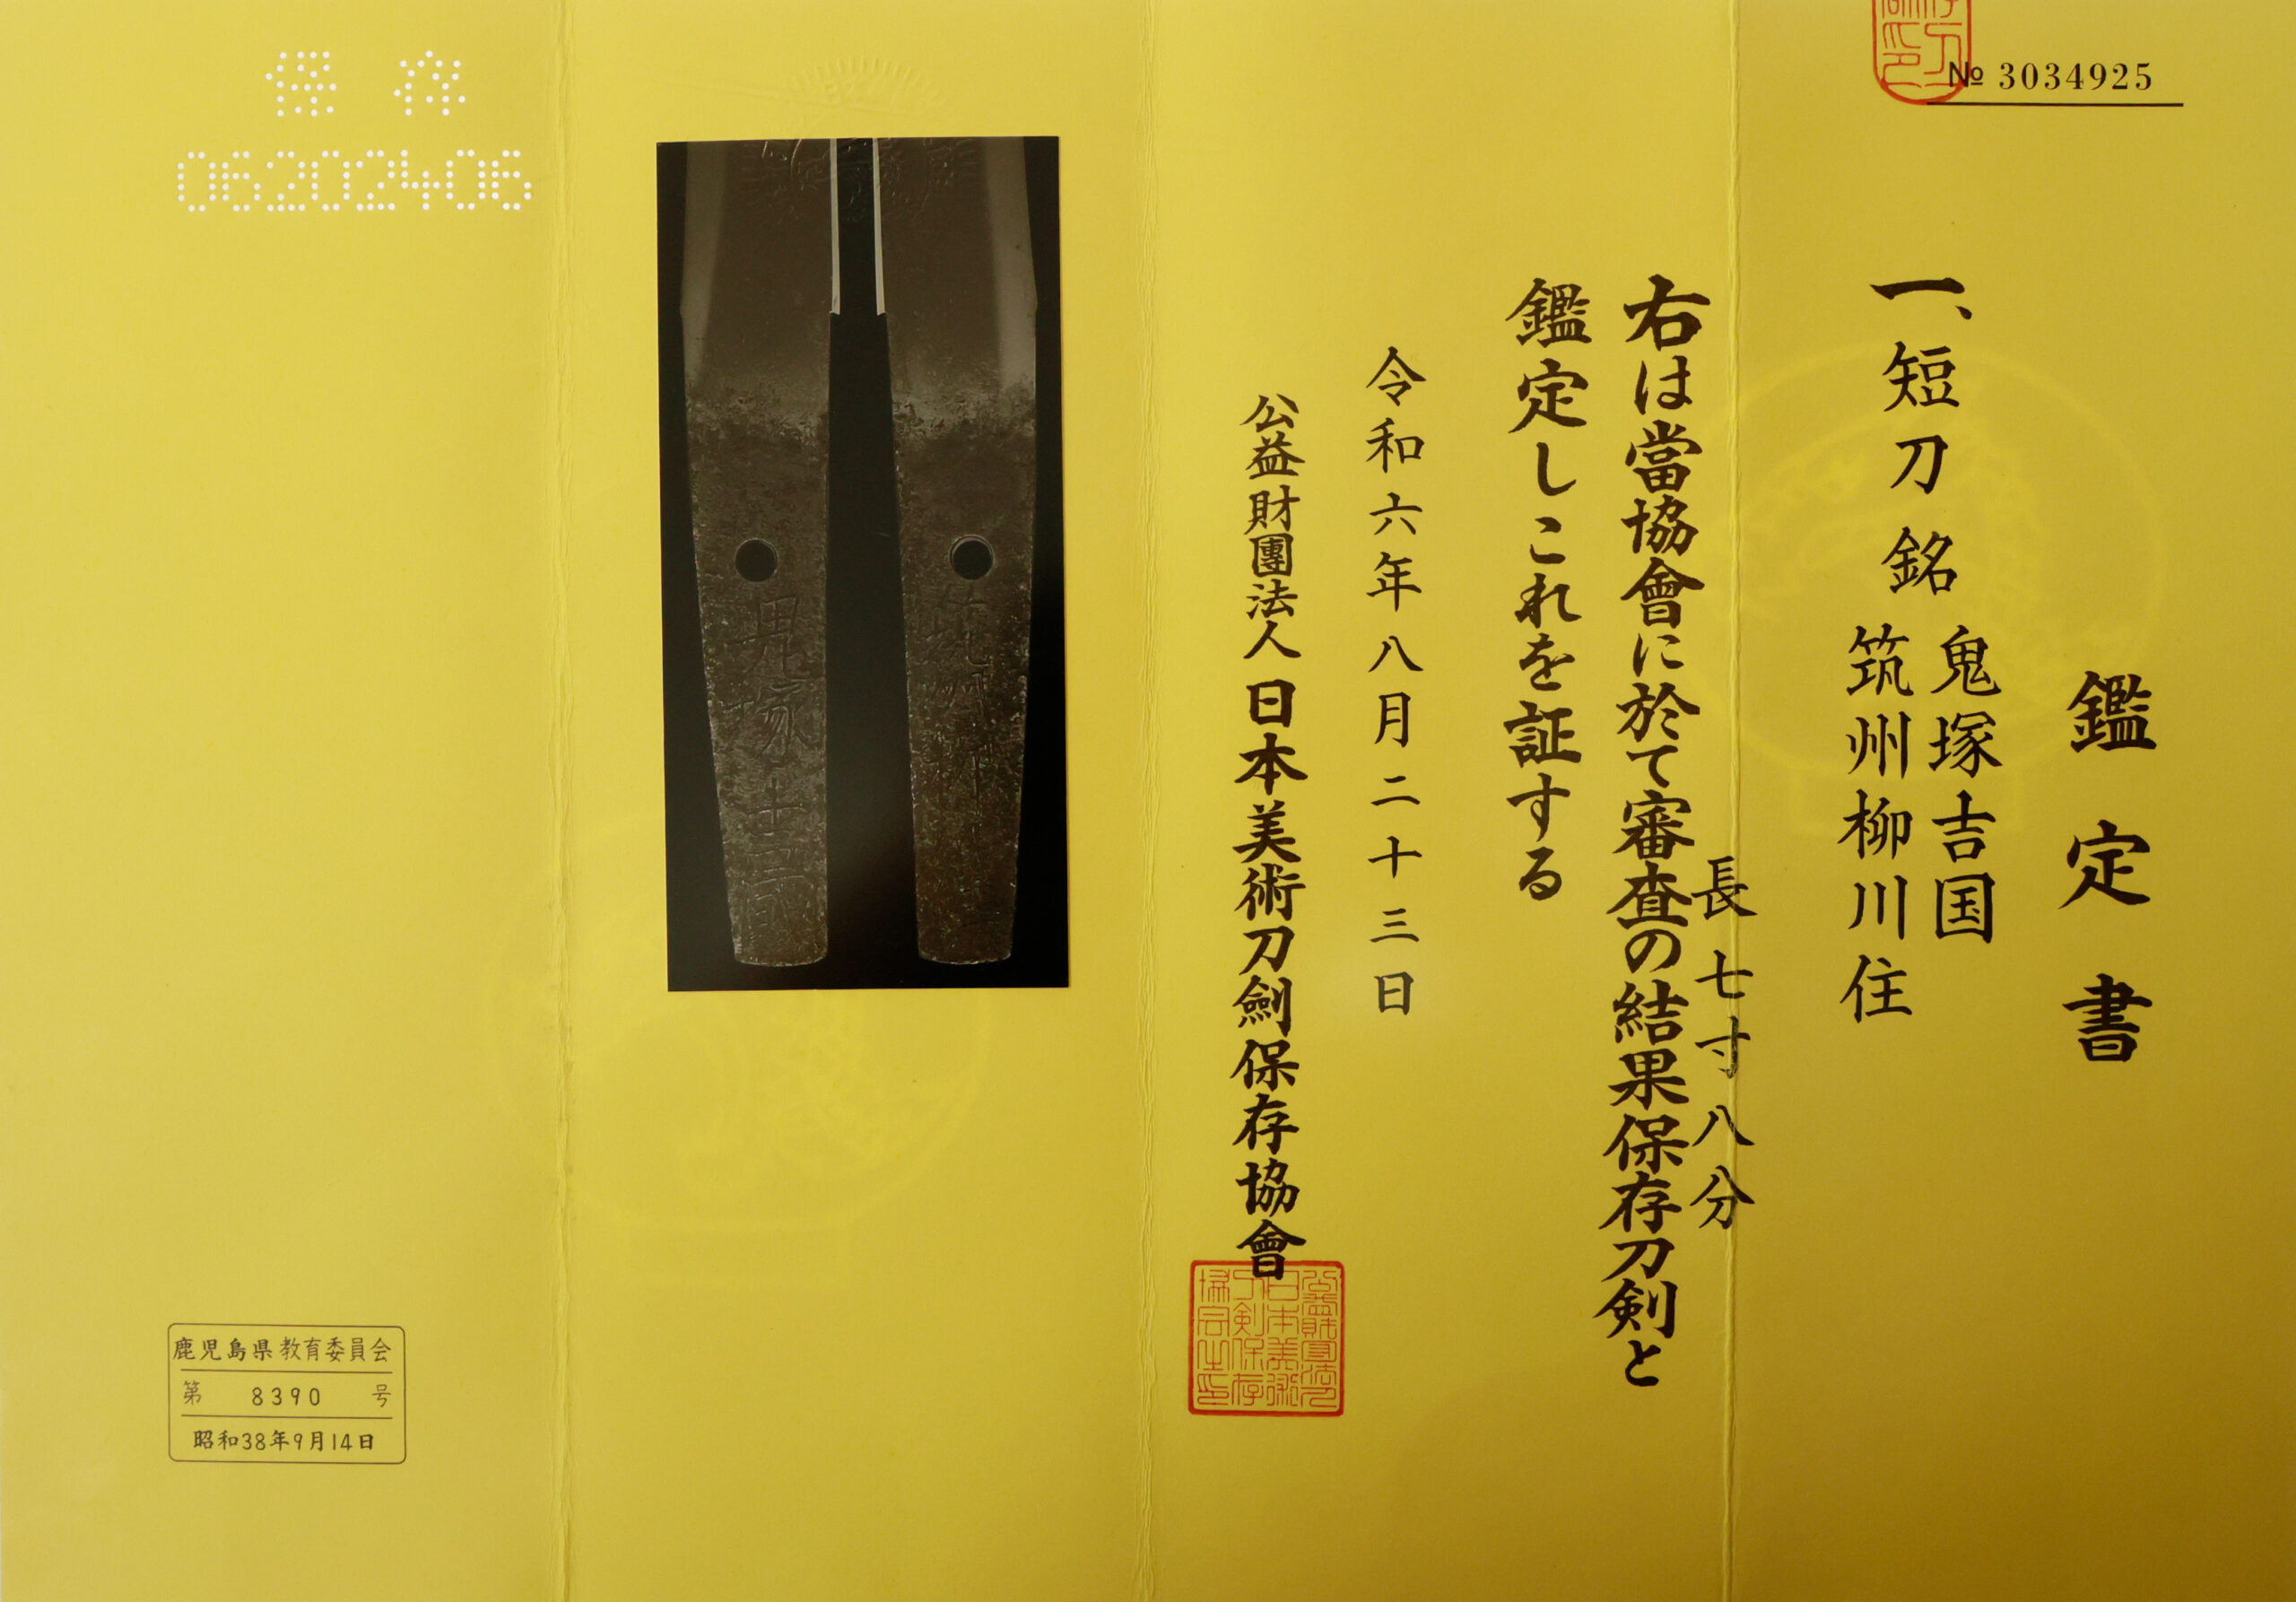 № 3034925
鑑定書
一、短刀 銘 鬼塚吉国
筑州柳川住
長七寸八分
右は當協會に於て審査の結果保存刀剣と
鑑定しこれを証する
令和六年八月二十三日
公益財團法人 日本美術刀劍保存協會
保存
06202406
鹿児島県教育委員会
第 8390 号
昭和38年9月14日